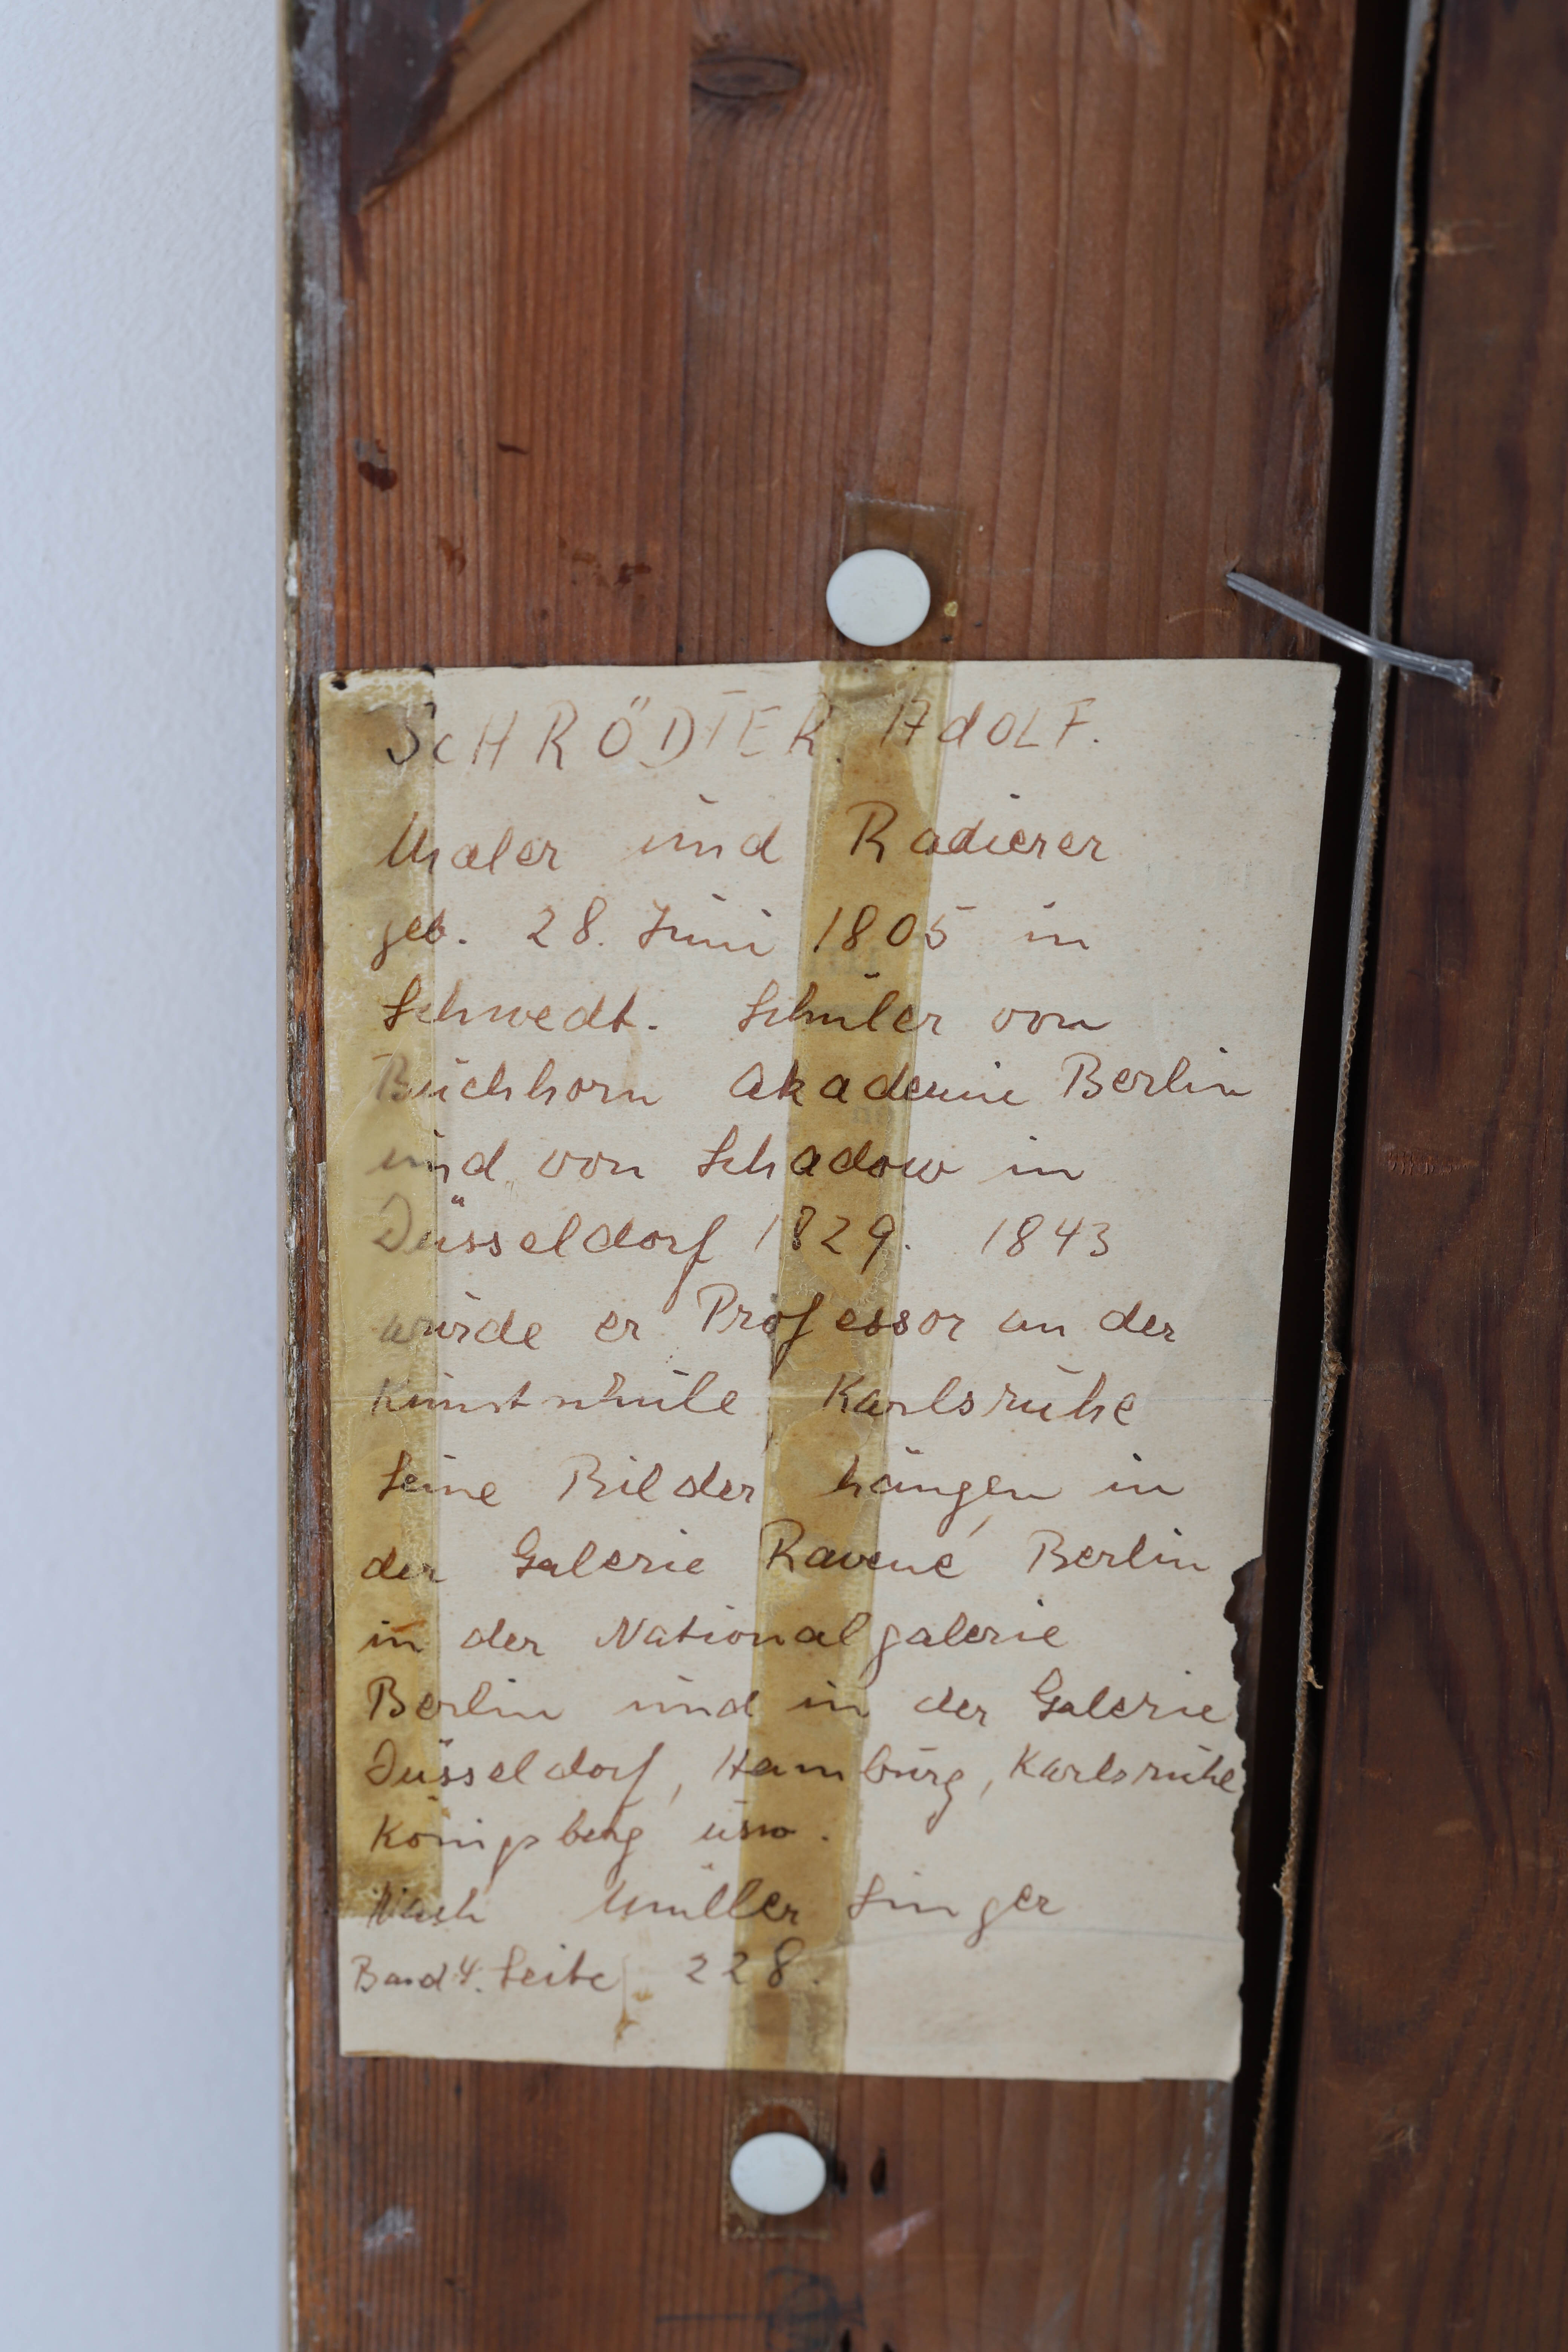 SCHRÖDTER AdOLF.
Maler und Radierer
geb. 28. Juni 1805 in
Schwedt. Schüler von
Buchhorn Akademie Berlin
und von Schadow in
Düsseldorf 1829. 1843
wurde er Professor an der
Kunstschule Karlsruhe
Seine Bilder hängen in
der Galerie Ravené Berlin
in der Nationalgalerie
Berlin und in der Galerie
Düsseldorf, Hamburg, Karlsruhe
Königsberg usw.
Nach Müller Singer
Band 4. Seite 228.